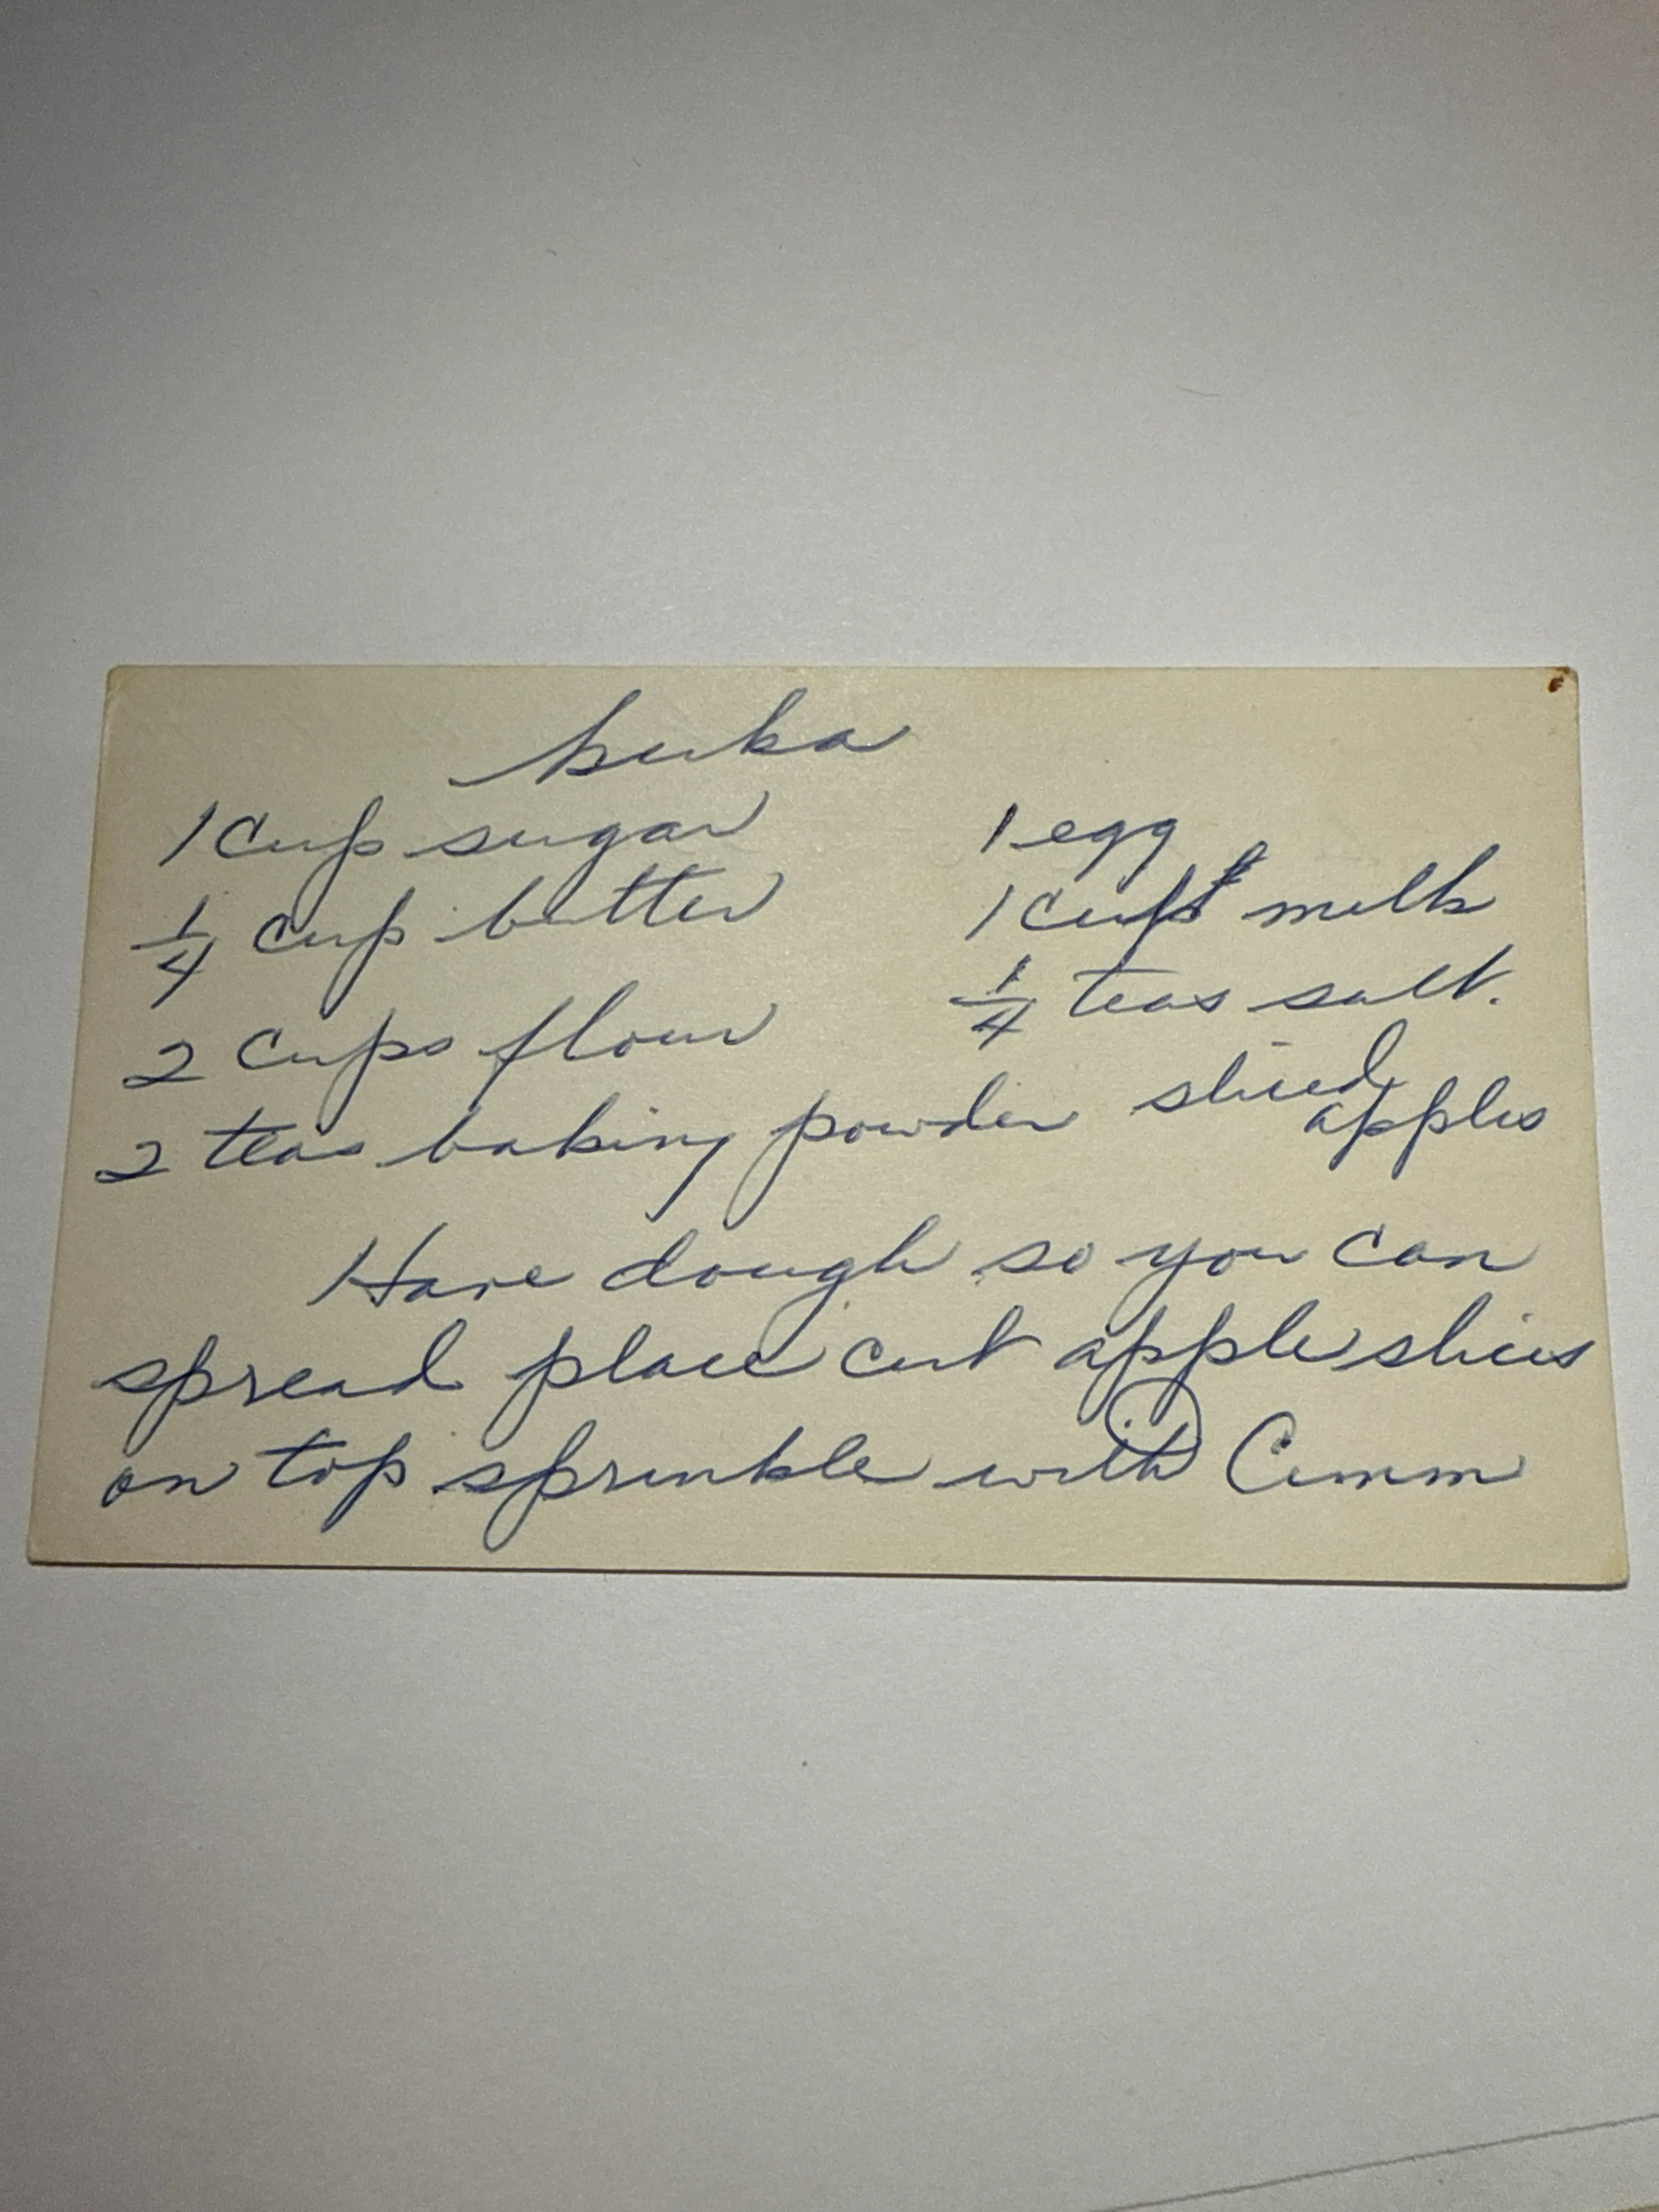 kuka
1 cup sugar
1/4 cup butter
2 cups flour
2 teas baking powder
1 egg
1 cup milk
1/4 teas salt.
sliced
apples
Have dough so you can
spread place cut apple slices
on top sprinkle with Cinnm